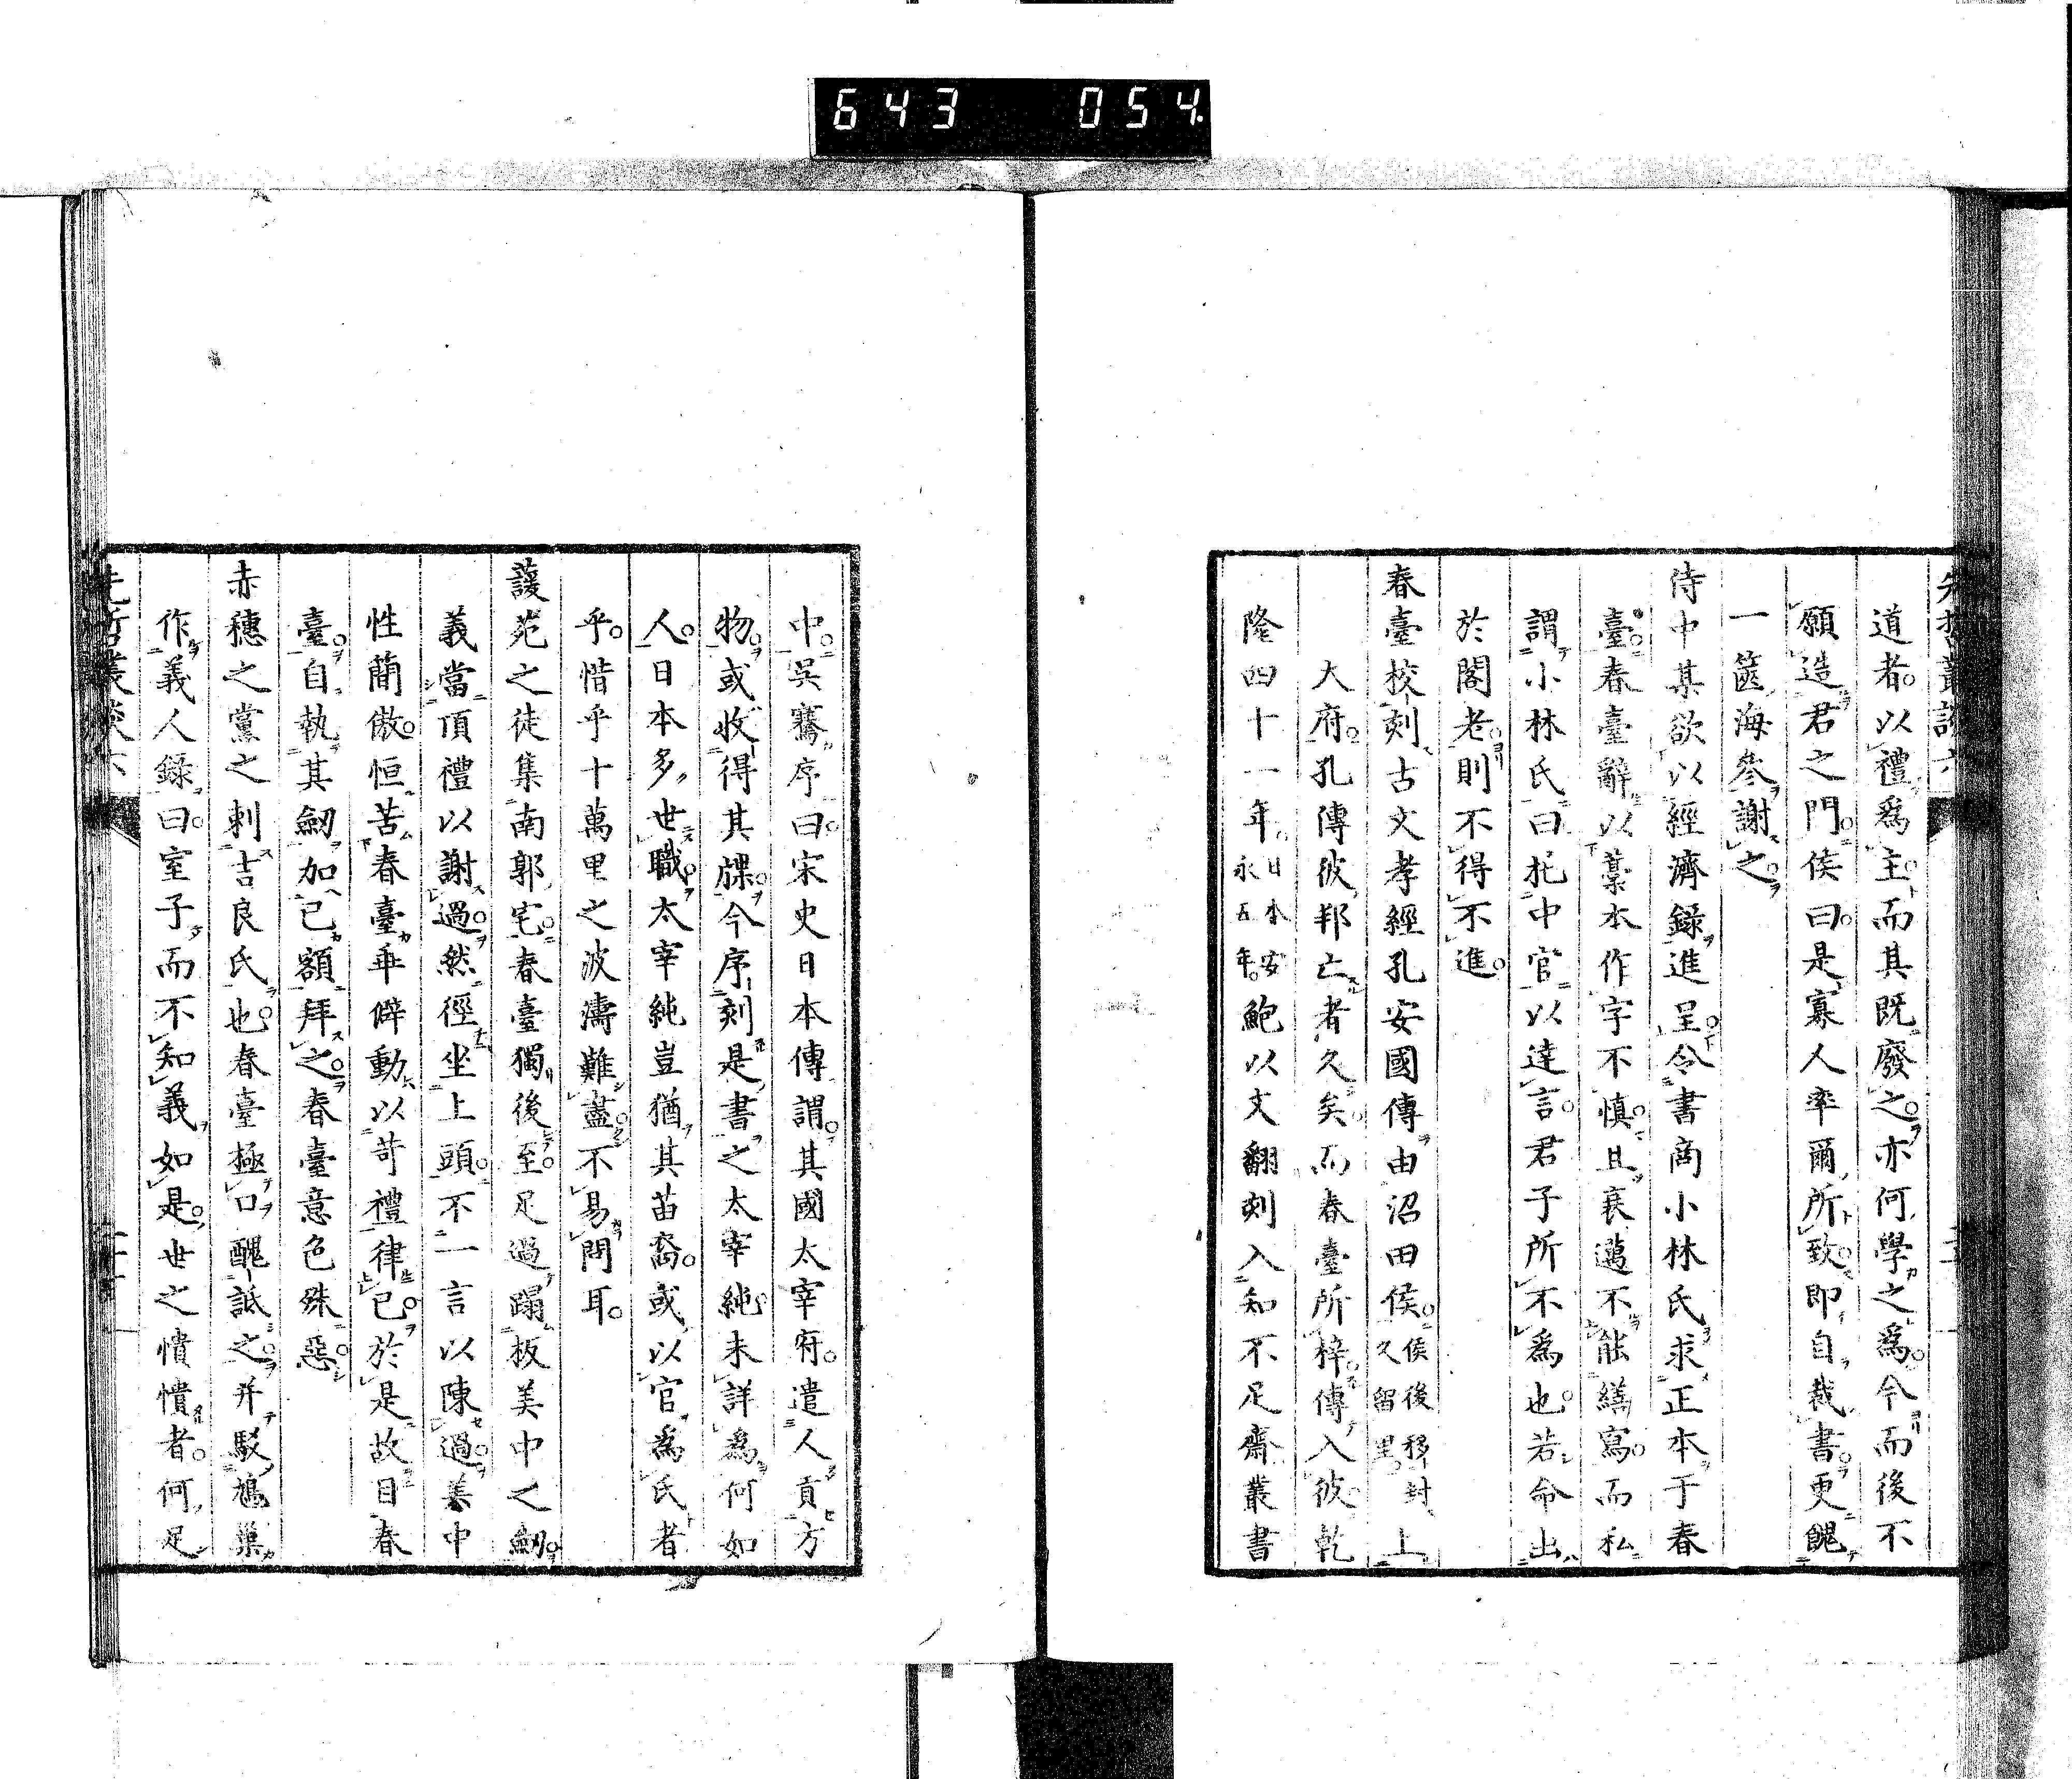 643 054
先哲叢談六
道者。以禮爲主。而其既廢之。亦何學之爲。今而後不
願造君之門。侯曰。是寡人率爾所致。即自裁書。更餽
一篋海參謝之。
侍中某欲以經濟錄進呈。令書商小林氏求正本于春
臺。春臺辭以藁本作字不愼。且衰邁不能繕寫。而私
謂小林氏曰。托中官以達言。君子所不爲也。若命出
於閣老。則不得不進。
春臺校刻古文孝經孔安國傳。由沼田侯。侯後移封上久留里。
大府。孔傳彼邦亡者久矣。而春臺所梓傳入彼。乾
隆四十一年。日本安永五年。鮑以文翻刻入知不足齋叢書
中。吳騫序曰。宋史日本傳謂。其國太宰府。遣人貢方
物。或收得其牒。今序刻是書之太宰純。未詳爲何如
人。日本多世職。太宰純豈猶其苗裔。或以官爲氏者
乎。惜乎十萬里之波濤難盡。不易問耳。
蘐苑之徒集南郭宅。春臺獨後至。足過蹋板美中之劒。
義當頂禮以謝過。然徑坐上頭。不一言以陳過。美中
性簡傲。恒苦春臺乖僻動以苛禮律己。於是故目春
臺。自執其劒加己額拜之。春臺意色殊惡。
赤穗之黨之刺吉良氏也。春臺極口醜詆之。并駁鳩巢
作義人錄曰。室子而不知義如是。世之憒憒者。何足
先哲叢談六